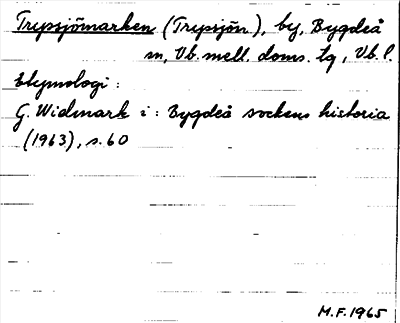 Trypsjömarken (Trypsjön), by, Bygdeå
sn, Vb. mell. doms. tg, Vb. l.
Etymologi:
G. Widmark i: Bygdeå sockens historia
(1963), s. 60
M.F. 1965